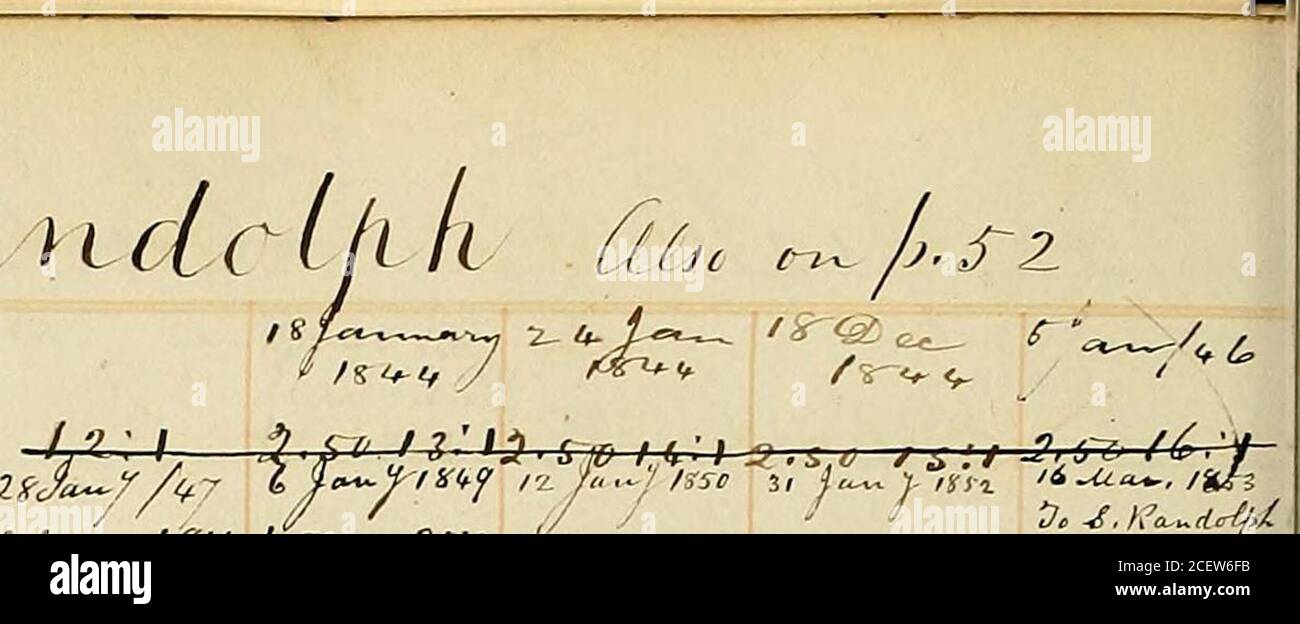 ndolph Also on p. 52
18 January 24 Jan 18 Dec 5 Jan/46
1844 1844 1844
12:1 2.50 13:1 2.50 14:1 2.50 15:1 2.50 16:1
28 Jany /47 6 Jany 1849 12 Jany 1850 31 Jany 1852 16 Mar. 1853
To S. Randolph
alamy
Image ID: 2CEW6FB
www.alamy.com